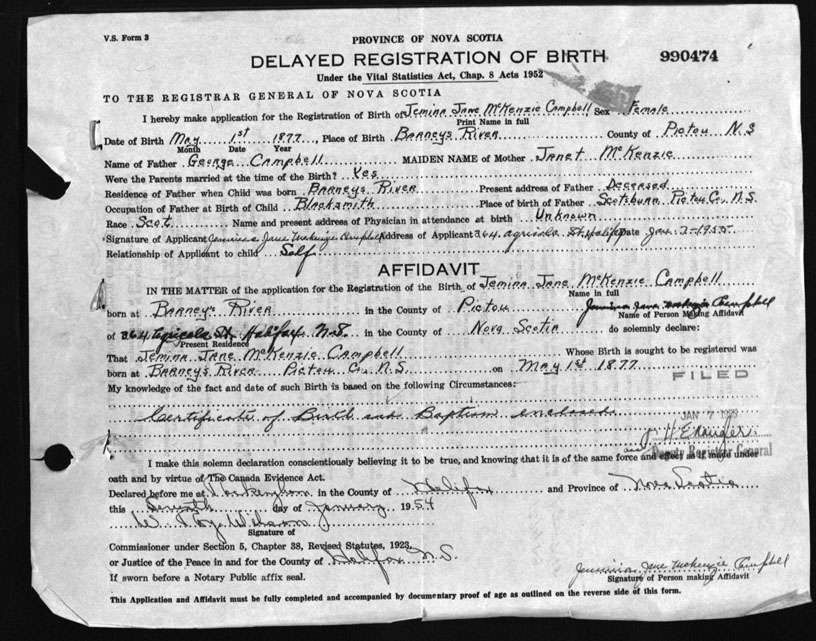 V.S. Form 3
PROVINCE OF NOVA SCOTIA
DELAYED REGISTRATION OF BIRTH 990474
Under the Vital Statistics Act, Chap. 8 Acts 1952
TO THE REGISTRAR GENERAL OF NOVA SCOTIA
I hereby make application for the Registration of Birth of Jemina Jane McKenzie Campbell Sex Female
Print Name in full
Date of Birth May 1st 1877, Place of Birth Barneys River County of Pictou N.S
Month Date Year
Name of Father George Campbell MAIDEN NAME of Mother Janet McKenzie
Were the Parents married at the time of the Birth? Yes
Residence of Father when Child was born Barneys River Present address of Father Deceased
Occupation of Father at Birth of Child Blacksmith Place of birth of Father Scotsburn Pictou Co., N.S.
Race Scot Name and present address of Physician in attendance at birth Unknown
Signature of Applicant Jemima Jane McKenzie Campbell Address of Applicant 264 Agricola St. Halifax Date Jan. 7-1955
Relationship of Applicant to child Self
AFFIDAVIT
IN THE MATTER of the application for the Registration of the Birth of Jemina Jane McKenzie Campbell
Name in full
born at Barney's River in the County of Pictou Jemima Jane McKenzie Campbell
Name of Person Making Affidavit
of 264 Agricola St. Halifax N.S. in the County of Nova Scotia do solemnly declare:
Present Residence
That Jemina Jane McKenzie Campbell Whose Birth is sought to be registered was
born at Barneys River Pictou Co., N.S. on May 1st 1877
FILED
My knowledge of the fact and date of such Birth is based on the following Circumstances:
Certificate of Birth and Baptism enclosed
JAN 7
Deputy Registrar General
I make this solemn declaration conscientiously believing it to be true, and knowing that it is of the same force and effect as if made under
oath and by virtue of The Canada Evidence Act.
Declared before me at Rockingham in the County of Halifax and Province of Nova Scotia
this Seventh day of January 1954
W. Roy Wilson
Signature of
Commissioner under Section 5, Chapter 38, Revised Statutes, 1923,
or Justice of the Peace in and for the County of Halifax N.S.
If sworn before a Notary Public affix seal.
Jemima Jane McKenzie Campbell
Signature of Person making Affidavit
This Application and Affidavit must be fully completed and accompanied by documentary proof of age as outlined on the reverse side of this form.